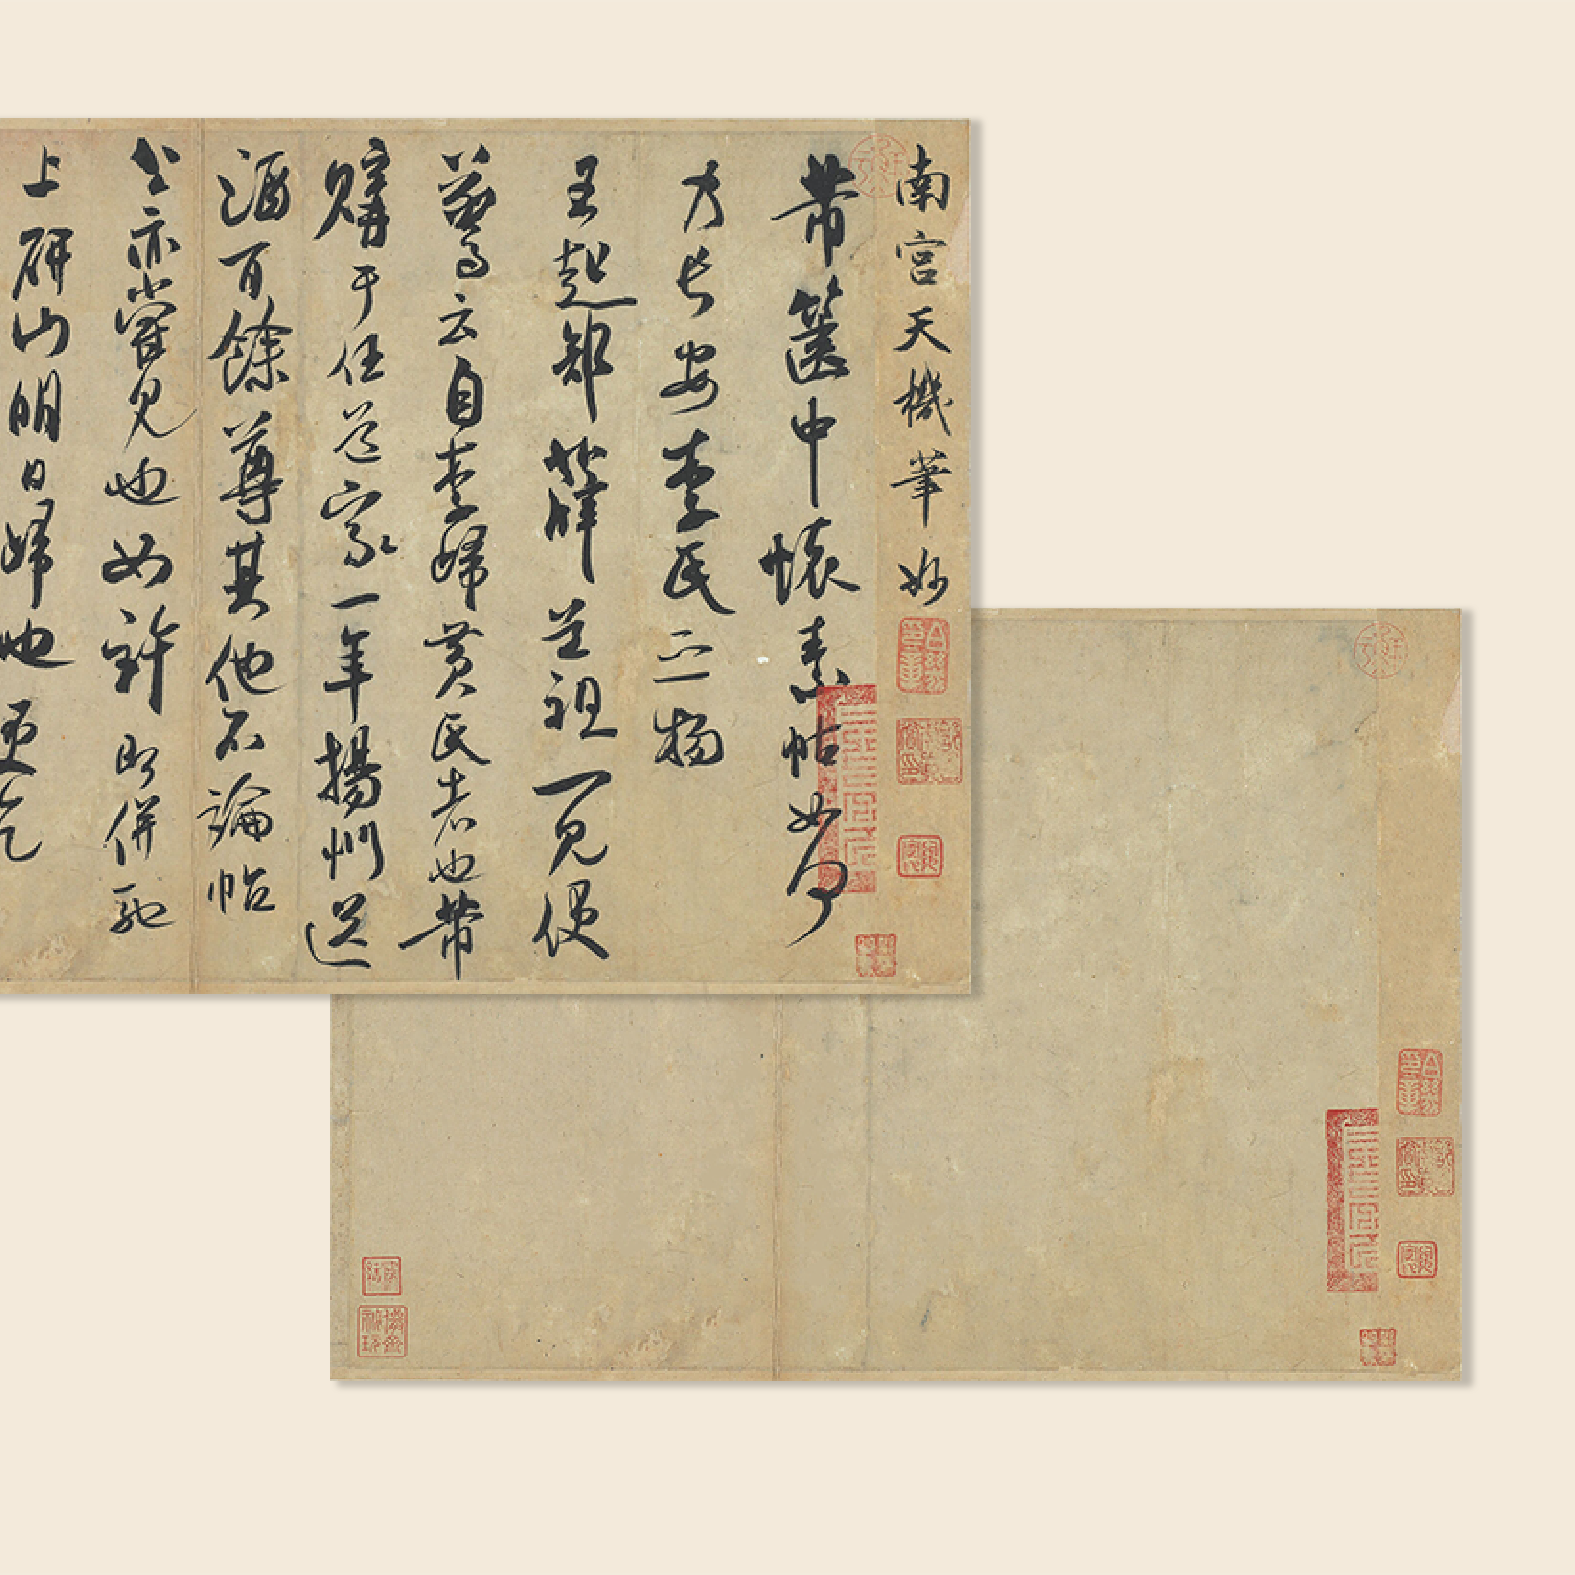 南宮天機筆妙
芾篋中懷素帖如何
乃長安李氏之物
王起部薛道祖一見便
驚云自李歸黃氏者也芾
購于任道家一年揚州送
酒百餘尊其他不論帖
公亦嘗見也如許即併馳
上研山明日歸也更乞